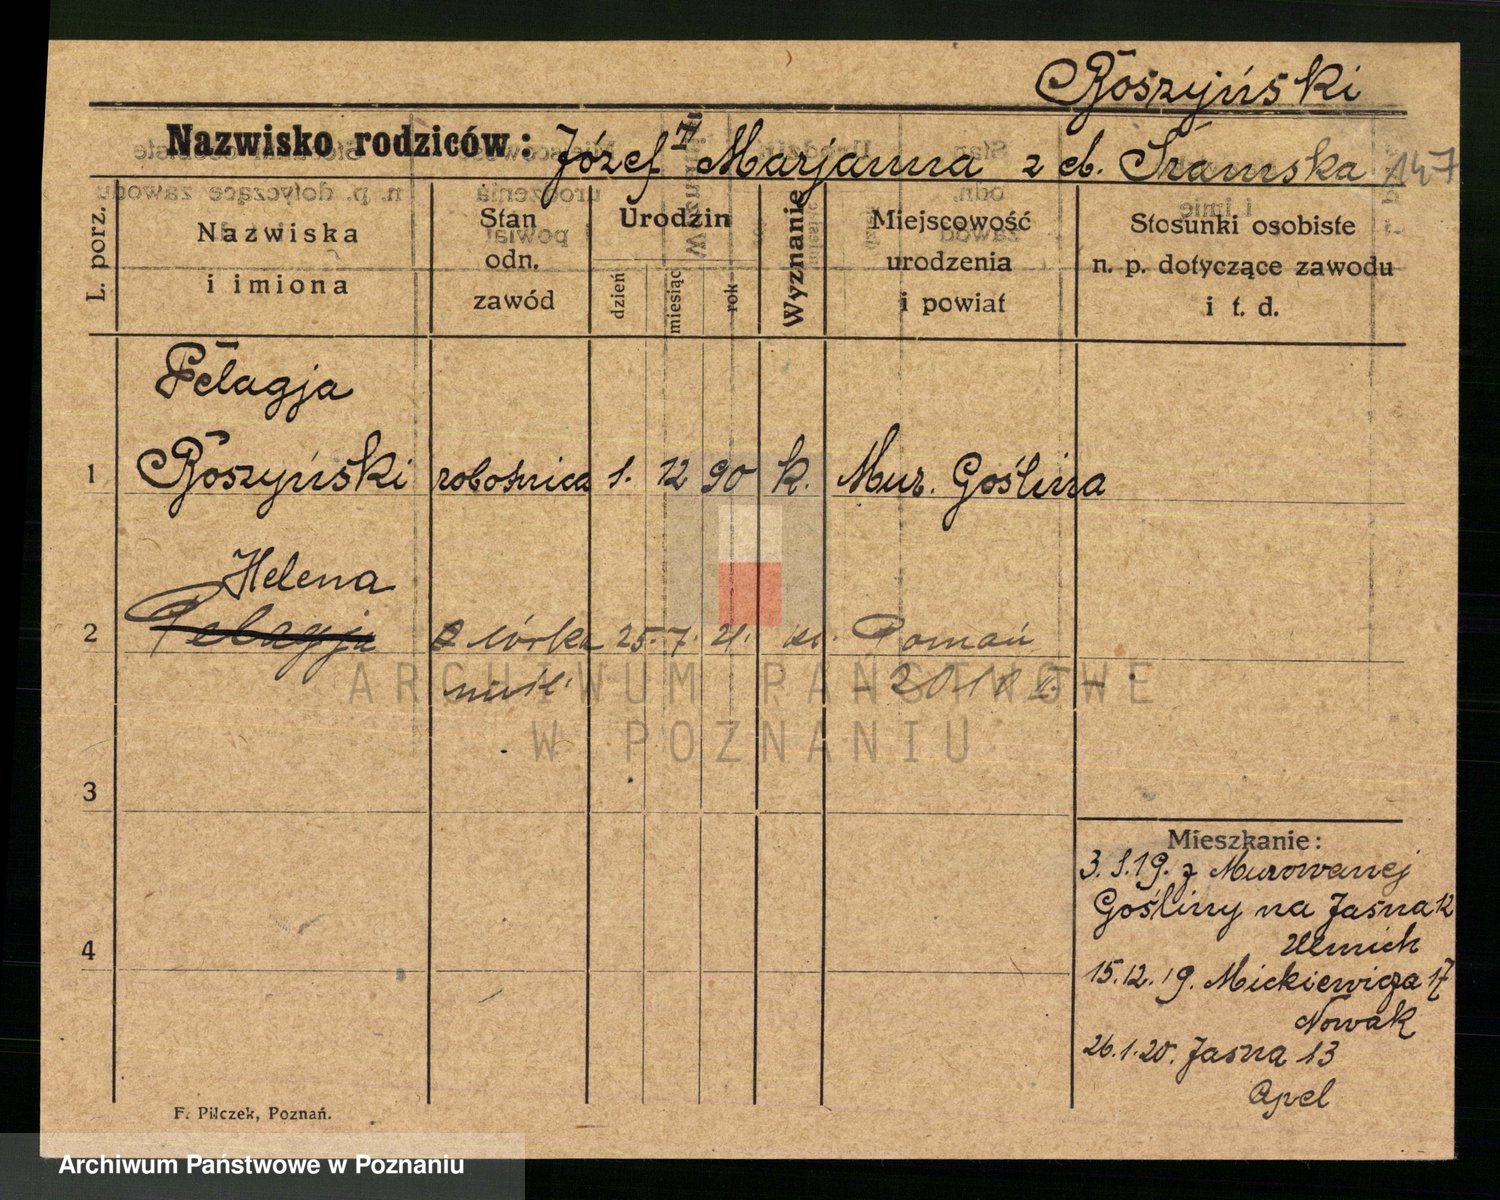 Roszyński
Nazwisko rodziców: Józef i Marjanna z d. Sramska 147
L. porz.
Nazwiska
i imiona
Stan
odn.
zawód
Urodzin
dzień
miesiąc
rok
Wyznanie
Miejscowość
urodzenia
i powiat
Stosunki osobiste
n. p. dotyczące zawodu
i t. d.
Pelagja
1 Roszyński robotnica 1. 12 90 k. Mur. Goślina
Helena
2 Pelagja córka 25. 7. 21. Poznań
3
4
Mieszkanie:
3.1.19. z Murowanej
Gośliny na Jasna 12
Ulmich
15.12.19. Mickiewicza 17
Nowak
26.1.20. Jasna 13
Apel
F. Pilczek, Poznań.
ARCHIWUM PAŃSTWOWE
W POZNANIU
Archiwum Państwowe w Poznaniu